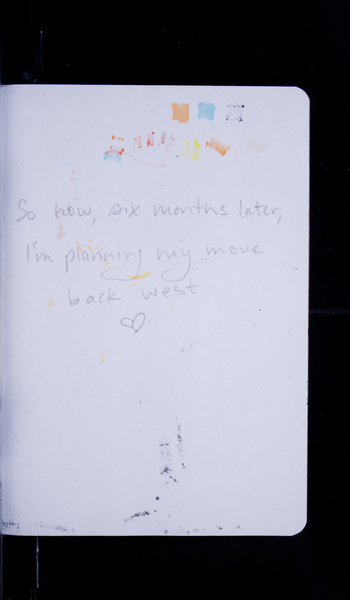 So now, six months later,
I'm planning my move
back west